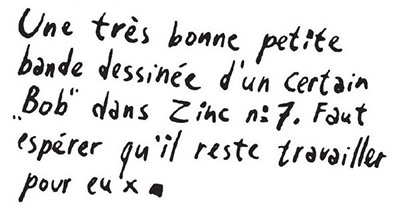 Une très bonne petite
bande dessinée d'un certain
„Bob" dans Zinc n: 7. Faut
espérer qu'il reste travailler
pour eux.